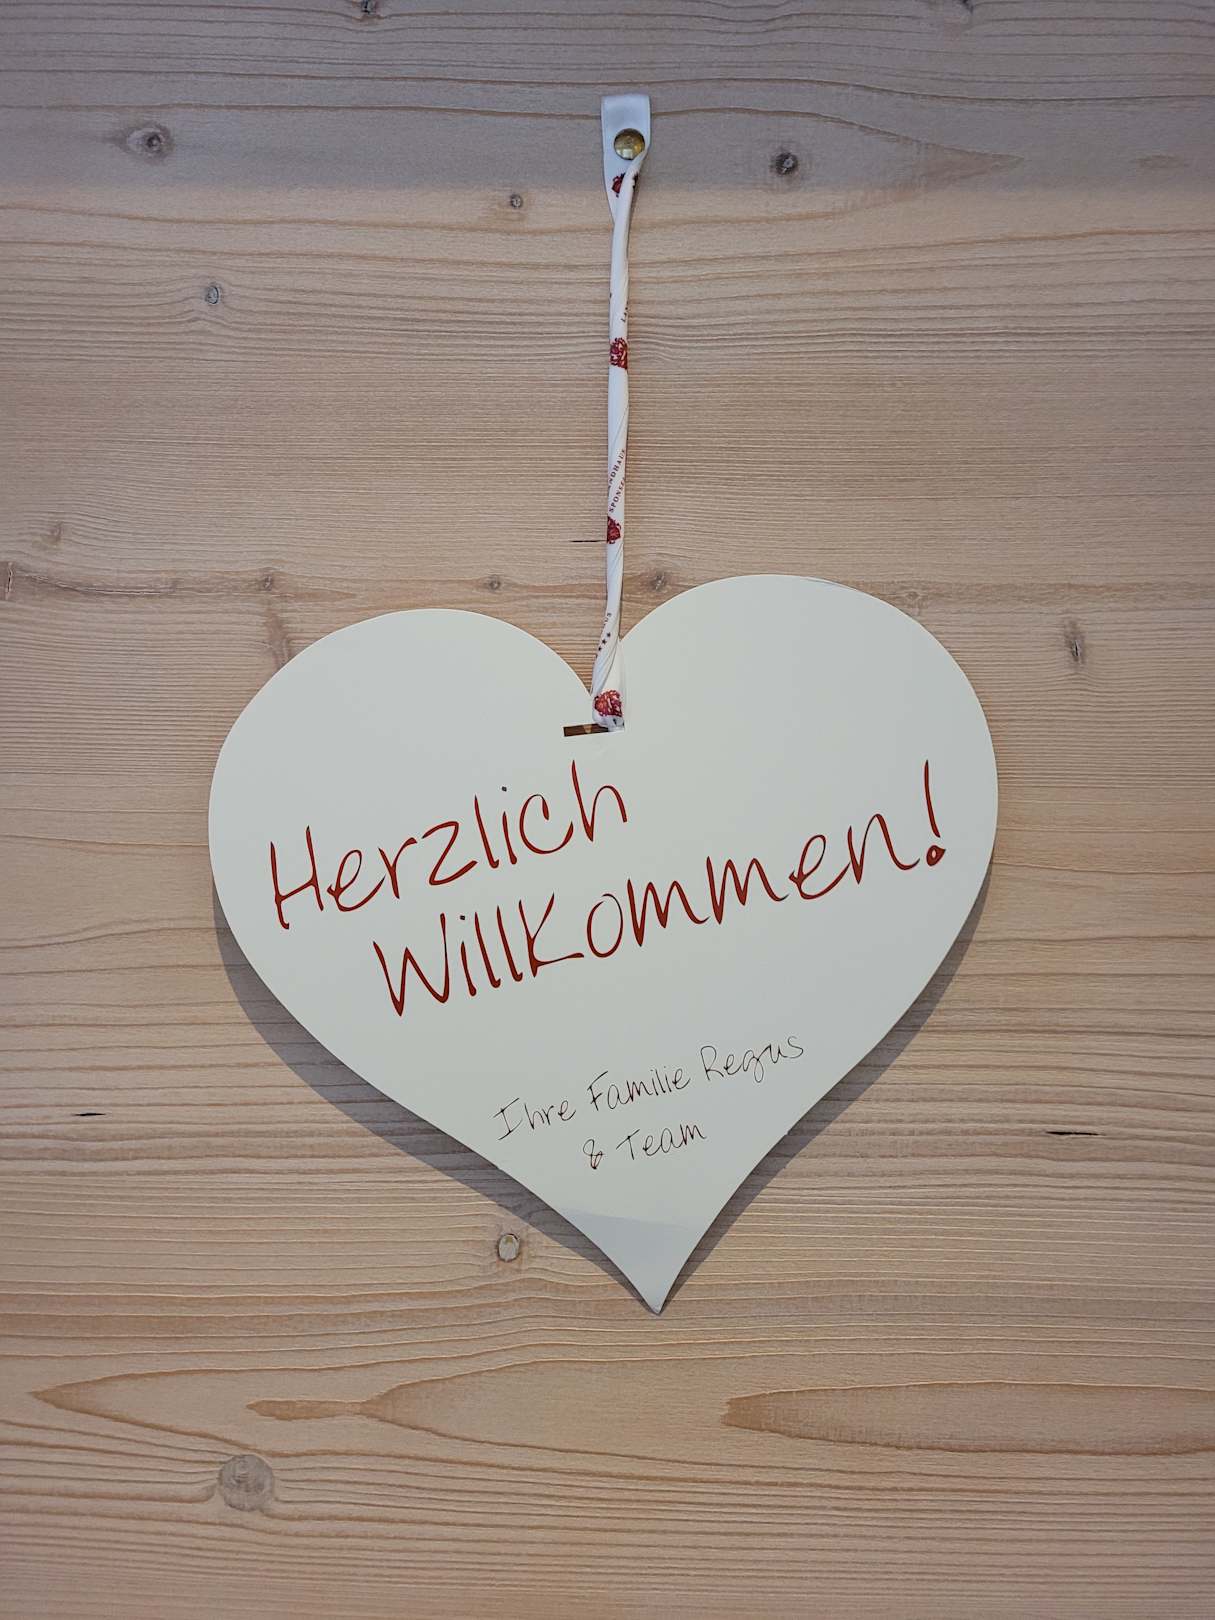 Herzlich
Willkommen!
Ihre Familie Regus
& Team